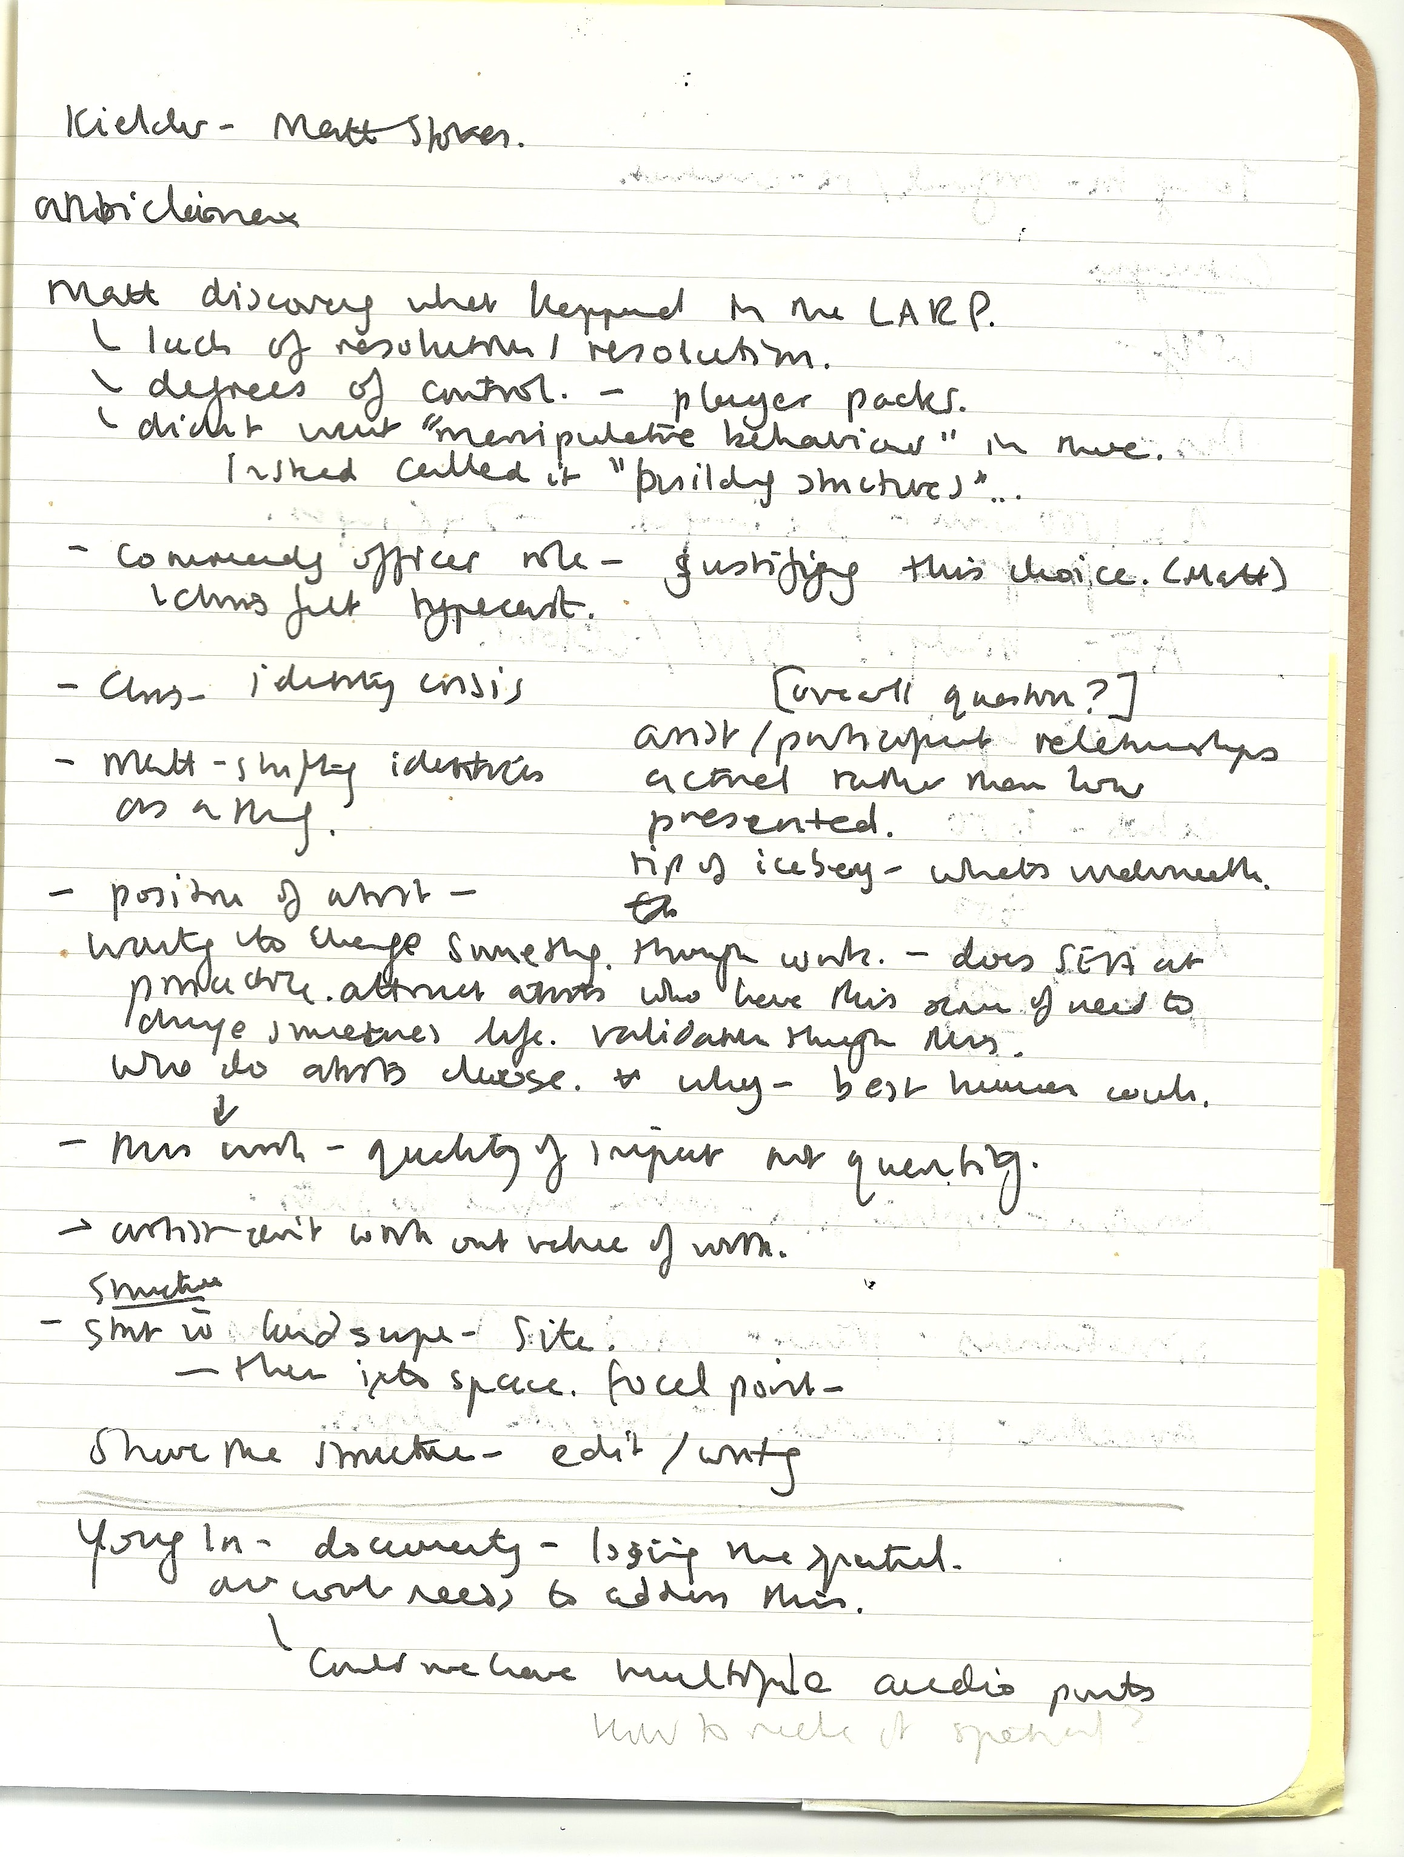 Kielder - Matt Stokes.
Matt discovering what happened in the LARP.
lack of resolutions / resolution.
degrees of control. - player packs.
didn't want "manipulative behaviour" in there.
Instead called it "building structures"...
- Commanding officer role - justifying this choice. (Matt)
Chris felt typecast.
- Chris - identity crisis
- Matt - shifting identities
as a thing.
[overall question?]
artist / participant relationships
actual rather than how
presented.
tip of iceberg - what's underneath.
- position of artist -
wanting to change something through work. - does SEA at
practice. attract artists who have this sense of need to
change someones life. validation through this.
who do artists choose. why - best human work.
- this work - quality of impact not quantity.
→ artist can't work out value of work.
Structure
- start in landscape - site.
- then into space. focal point -
Share the structure - edit / writing
Young In - documenty - losing the spatial.
our work needs to address this.
Could we have multiple audio points
how to make it spatial?